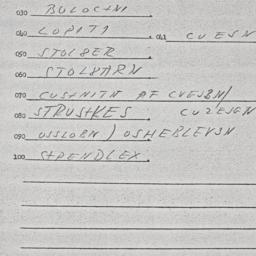 030 BULOCHNI
040 LOPITI 041 CUESN
050 STOLBER
060 STOLHARN
070 CUSHNITN AF CVEJBN/
080 STRUSHKES CUZESEN
090 USSLOBN / OSHEBLEVSN
100 SHPENDLEX